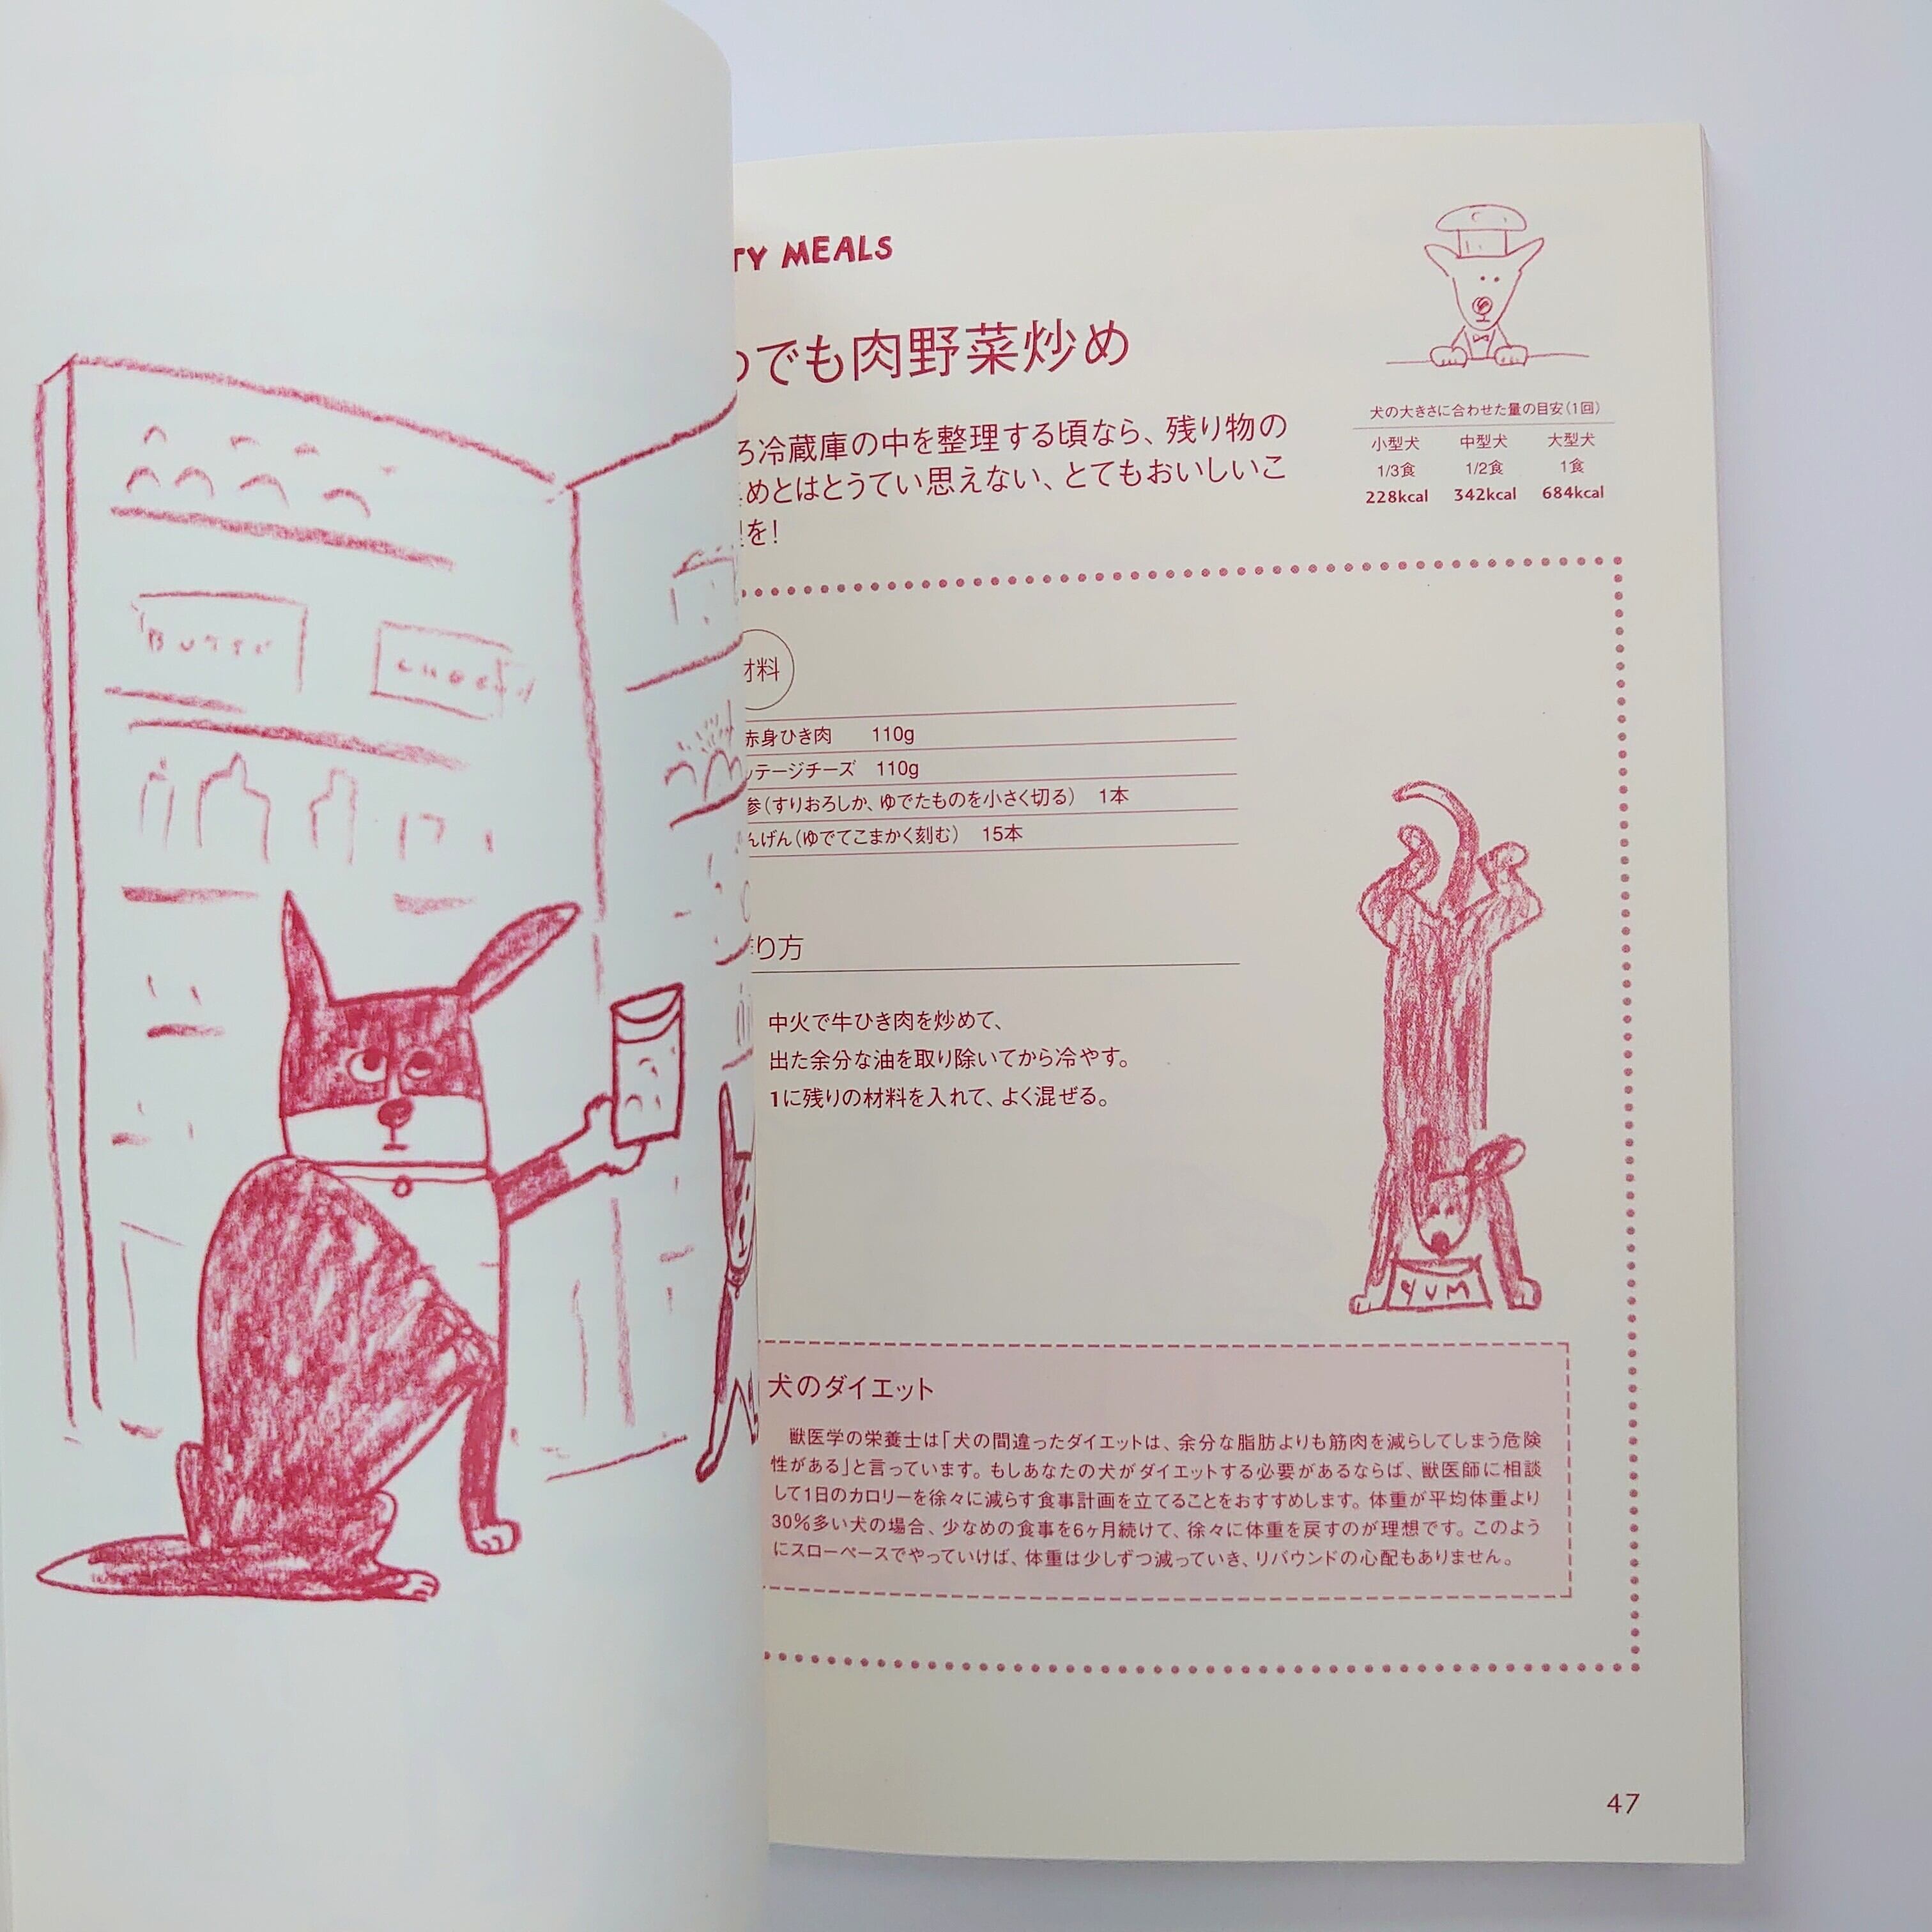 BUTTER
TY MEALS
つでも肉野菜炒め
ろ冷蔵庫の中を整理する頃なら、残り物の
めとはとうてい思えない、とてもおいしいこ
を!
犬の大きさに合わせた量の目安(1回)
小型犬 中型犬 大型犬
1/3食 1/2食 1食
228kcal 342kcal 684kcal
材料
赤身ひき肉 110g
ッテージチーズ 110g
参(すりおろしか、ゆでたものを小さく切る) 1本
んげん(ゆでてこまかく刻む) 15本
り方
中火で牛ひき肉を炒めて、
出た余分な油を取り除いてから冷やす。
1に残りの材料を入れて、よく混ぜる。
YUM
犬のダイエット
獣医学の栄養士は「犬の間違ったダイエットは、余分な脂肪よりも筋肉を減らしてしまう危険
性がある」と言っています。もしあなたの犬がダイエットする必要があるならば、獣医師に相談
して1日のカロリーを徐々に減らす食事計画を立てることをおすすめします。体重が平均体重より
30%多い犬の場合、少なめの食事を6ヶ月続けて、徐々に体重を戻すのが理想です。このよう
にスローペースでやっていけば、体重は少しずつ減っていき、リバウンドの心配もありません。
47